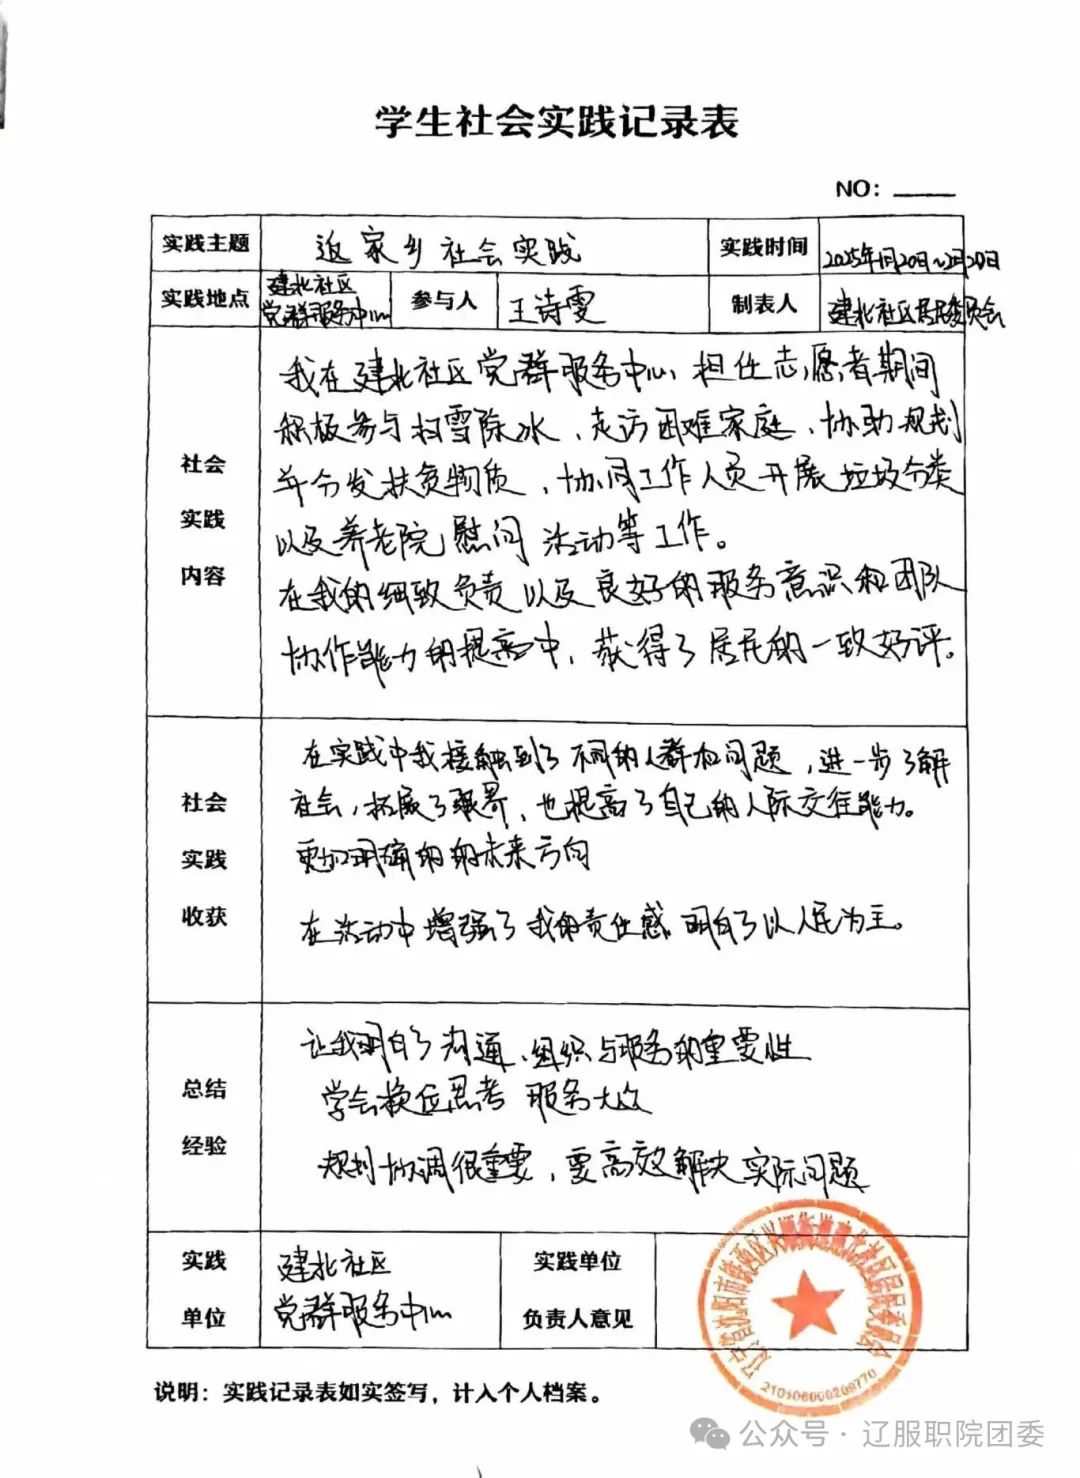 学生社会实践记录表
NO：
实践主题 返家乡社会实践 实践时间 2025年1月20日~2月20日
实践地点 建北社区党群服务中心 参与人 王诗雯 制表人 建北社区居民委员会
社会实践内容
我在建北社区党群服务中心担任志愿者期间
积极参与扫雪除冰、走访困难家庭、协助规划
并分发扶贫物质、协同工作人员开展垃圾分类
以及养老院慰问活动等工作。
在我的细致负责以及良好的服务意识和团队
协作能力的提高中，获得了居民的一致好评。
社会实践收获
在实践中我接触到了不同的人群和问题，进一步了解
社会，拓展了眼界，也提高了自己的人际交往能力。
更加明确的的未来方向
在活动中增强了我的责任感 明白了以人民为主。
总结经验
让我明白了沟通、组织与服务的重要性
学会换位思考 服务大众
规划协调很重要，要高效解决实际问题
实践单位 建北社区党群服务中心 实践单位负责人意见
辽宁省沈阳市铁西区兴顺街道建北社区居民委员会
说明：实践记录表如实签写，计入个人档案。
公众号·辽服职院团委